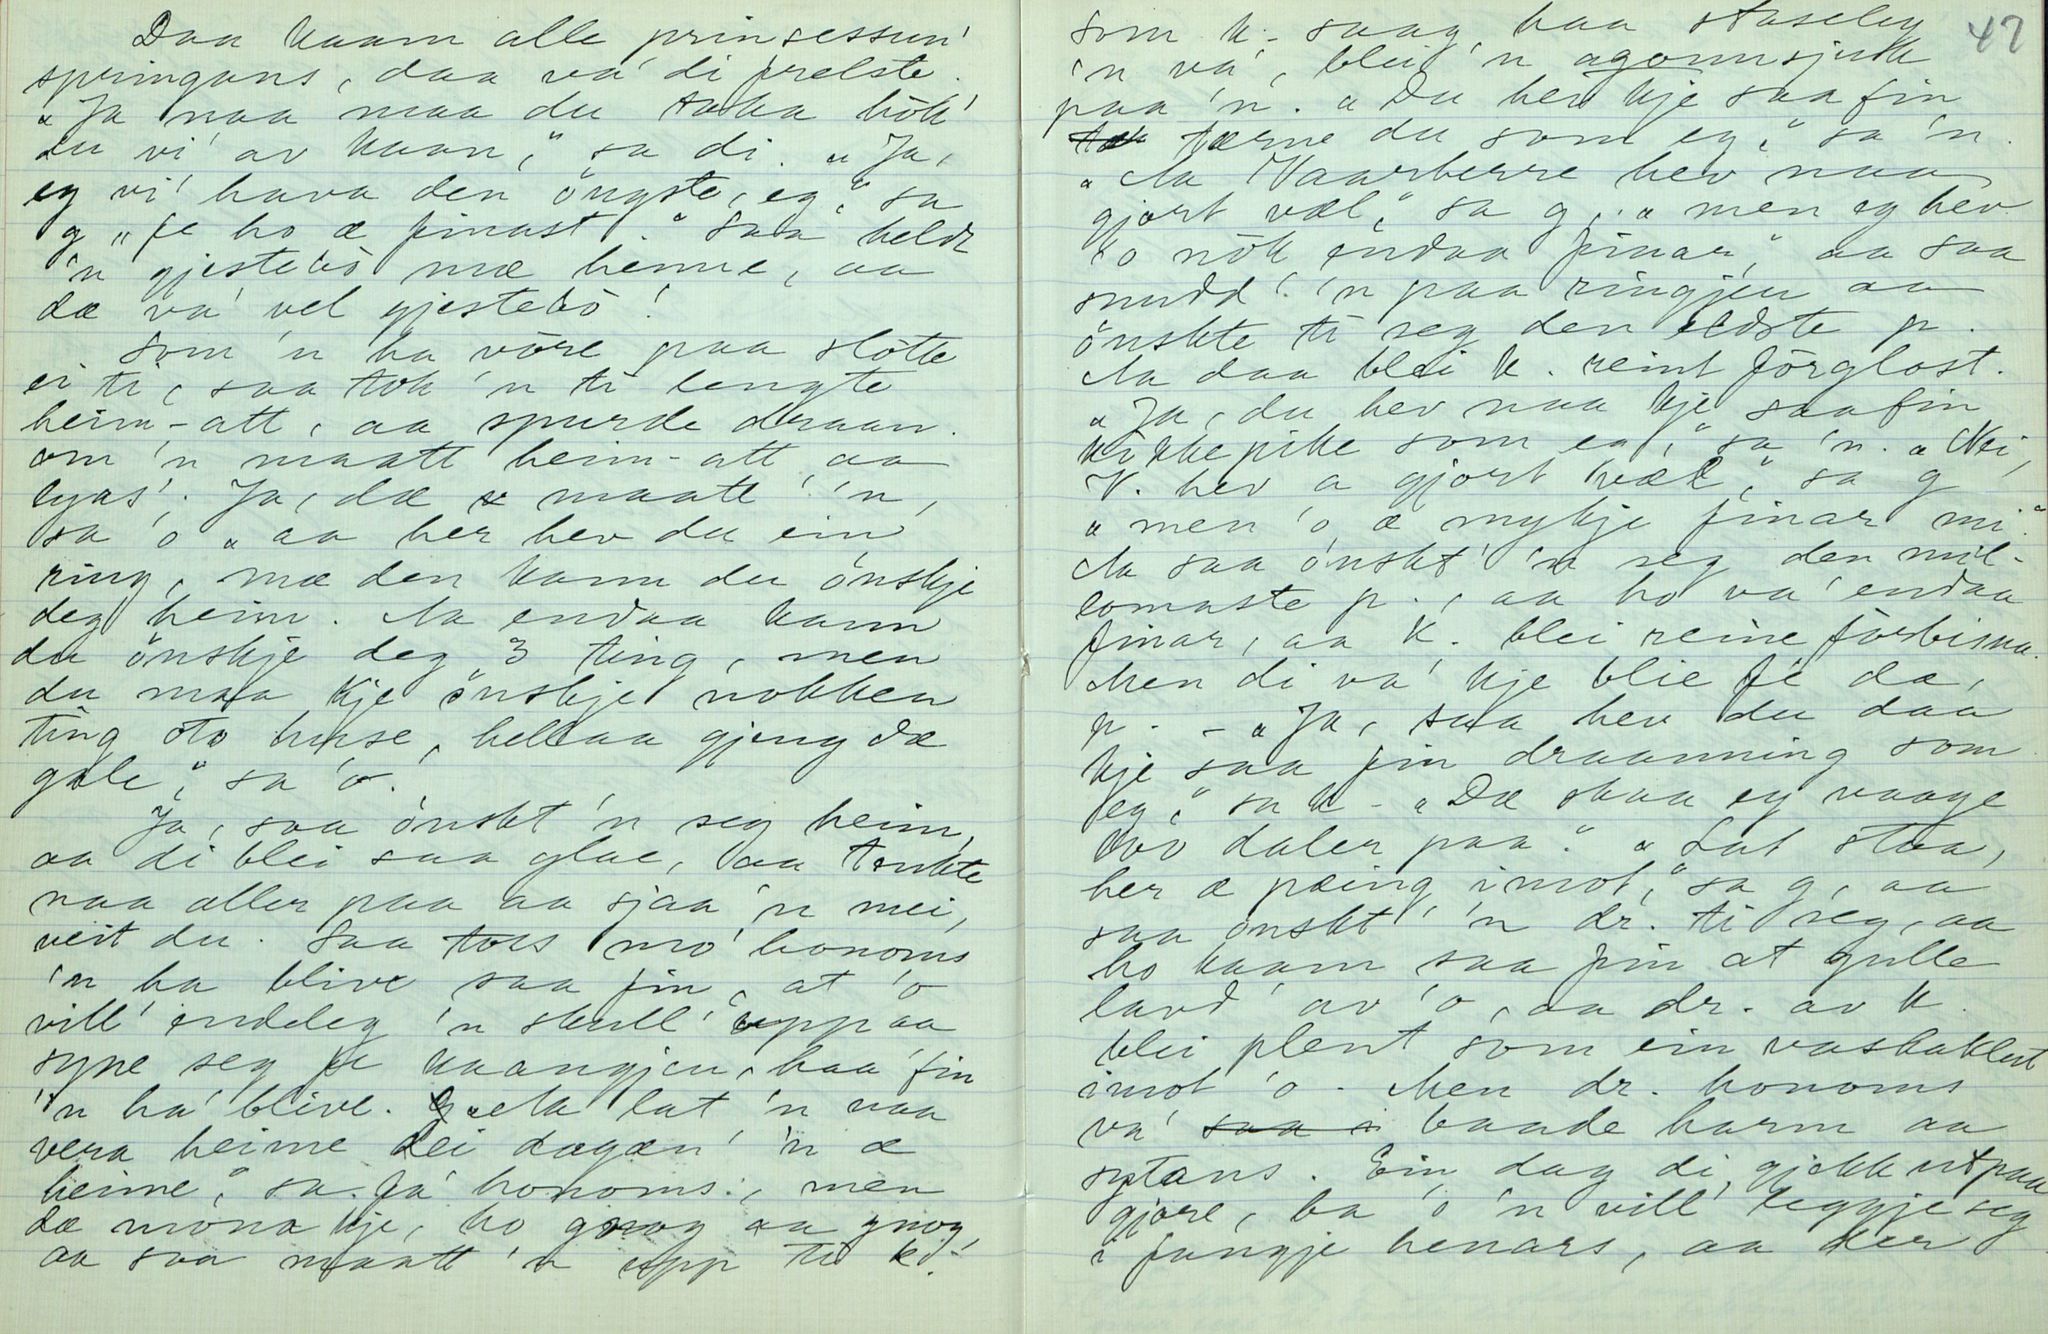 Daa kaam alle prinsessun'
springans, daa va' di frelste.
"Ja naa maa du taka hök'
du vi' av kaan," sa di. "Ja,
eg vi' hava den öngste, eg," sa
g "fe ho æ finast." Saa heldt
'n gjestebö mæ henne, aa
dæ va' vel gjestebö!
Som 'n ha vöre paa slötte
ei ti, saa tok 'n ti lengte
heim-att, aa spurde draan.
om 'n maatt heim-att aa
lyas'. Ja, dæ maatt' 'n,
sa 'o "aa her hev du ein
ring, mæ den kann du önskje
deg heim. Aa endaa kann
du önskje deg 3 ting, men
du maa kje önskje nokken
ting öto huse, hellaa gjeng dæ
gale," sa 'o.
Ja, saa önskt 'n seg heim,
aa di blei saa glae, aa tenkte
naa aller paa aa sjaa 'n mei,
veit du. Saa tots mo' honoms
'n ha blive saa fin, at 'o
vill' endeleg 'n skull' upp aa
syne seg fe kaangjen, haa fin
'n ha' blive. "Aa lat 'n naa
vera heime dei dagan' 'n æ
heime," sa fa' honoms, men
dæ möna kje, ho gnog aa gnog,
aa saa maatt 'n upp te k.
47
som k. saag haa staseleg
'n va', blei 'n agonnsjuk
paa 'n. "Du hev kje saa fin
tærne du som eg," sa 'n.
"Aa Vaarherre hev naa
gjort væl," sa g, "men eg hev
'o nök endaa finar," aa saa
snudd' 'n paa ringjen aa
önskte ti seg den eldste p.
Aa daa blei k. reint förglost.
"Ja, du hev naa kje saa fin
kjökkepike som eg," sa 'n. "Nei,
V. hev a gjort væl," sa g
"men 'o æ mykje finar mi."
Aa saa önskt' 'n seg den mil-
lomaste p., aa ho va' endaa
finar, aa k. blei reine förbisna.
Men di va' kje blie fe dæ,
p. - "Ja, saa hev du daa
kje saa fin draanning som
eg," sa k - "Dæ skaa eg vaage
daler paa." "Lat staa,
her æ pæing imot," sa g, aa
saa önskt' 'n dr. ti seg, aa
ho kaam saa fin at gulle
lavd' av 'o, aa dr. av k.
blei plent som ein vaskaklut
imot 'o. Men dr. honoms
va' baade harm aa
sytans. Ein dag di gjekk ut paa
gjöre, ba 'o 'n vill' leggje seg
i fangje henars, aa der